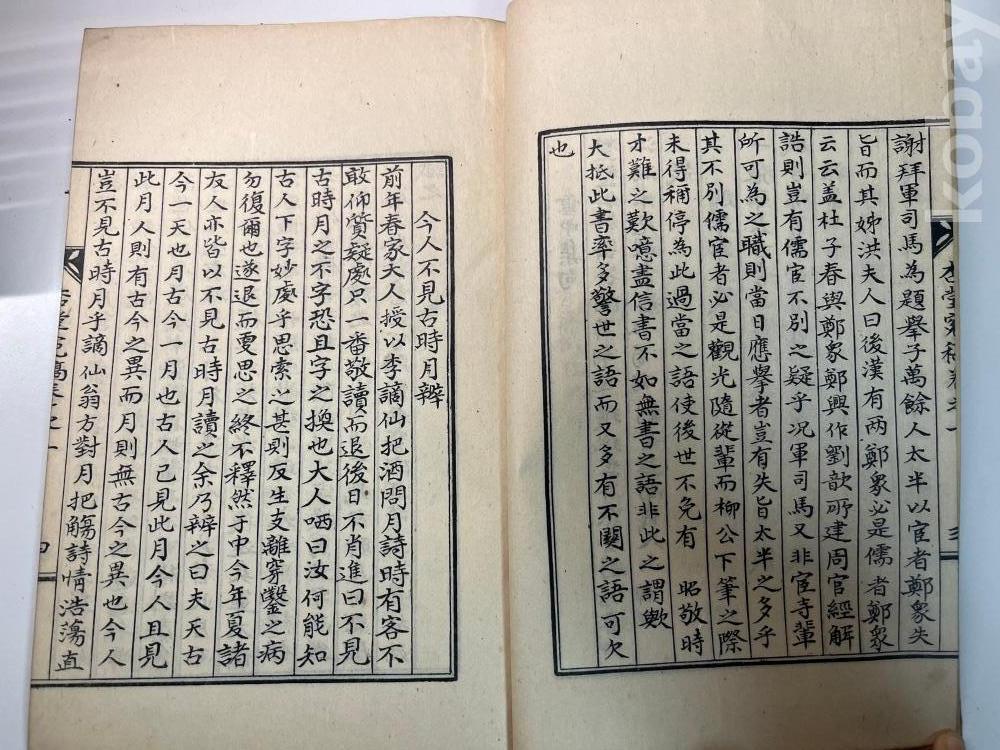 謝拜軍司馬為題擧子萬餘人太半以宦者鄭衆失
旨而其姊洪夫人曰後漢有两鄭衆必是儒者鄭衆
云云盖杜子春與鄭衆鄭興作劉歆所建周官經解
誥則豈有儒宦不別之疑乎况軍司馬又非宦寺輩
所可為之職則當日應擧者豈有失旨太半之多乎
其不別儒宦者必是觀光隨從輩而柳公下筆之際
未得稱停為此過當之語使後世不免有 昭敬時
才難之歎噫盡信書不如無書之語非此之謂歟
大抵此書率多驚世之語而又多有不關之語可欠
也
今人不見古時月辨
前年春家大人授以李謫仙把酒問月詩時有客不
敢仰質疑處只一番敬讀而退後日不肖進曰不見
古時月之不字恐且字之換也大人哂曰汝何能知
古人下字妙處乎思索之甚則反生支離穿鑿之病
勿復爾也遂退而更思之終不釋然于中今年夏諸
友人亦皆以不見古時月讀之余乃辨之曰夫天古
今一天也月古今一月也古人已見此月今人且見
此月人則有古今之異而月則無古今之異也今人
豈不見古時月乎謫仙翁方對月把觴詩情浩蕩直
四
kobay